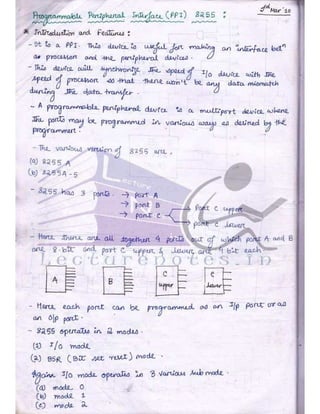 2nd Mar '20
Programmable Peripheral Interface (PPI) 8255 :
* Introduction and Features :
- It is a PPI. This device is useful for making an interface betn
a processor and the peripheral devices.
- This device will synchronize the speed of I/o device with the
speed of processor so that there won't be any data mismatch
during the data transfer.
- A programmable peripheral device is a multiport device where
the ports may be programmed in various ways as defined by the
programmer.
- The various version of 8255 are,
(a) 8255 A
(b) 8255A-5
- 8255 has 3 ports. → port A
→ port B
→ port C → Port C upper
→ port C lower
- Here there are all together 4 ports out of which port A and B
are 8-bit and port C upper & lower are 4 bit each.
Lecturenotes.in
A B C upper C lower
- Here each port can be programmed as an I/p port or as
an o/p port.
- 8255 operates in 2 modes.
(1) I/o mode
(2) BSR (Bit set reset) mode.
Again I/o mode operates in 3 various sub mode.
(a) mode 0
(b) mode 1
(c) mode 2